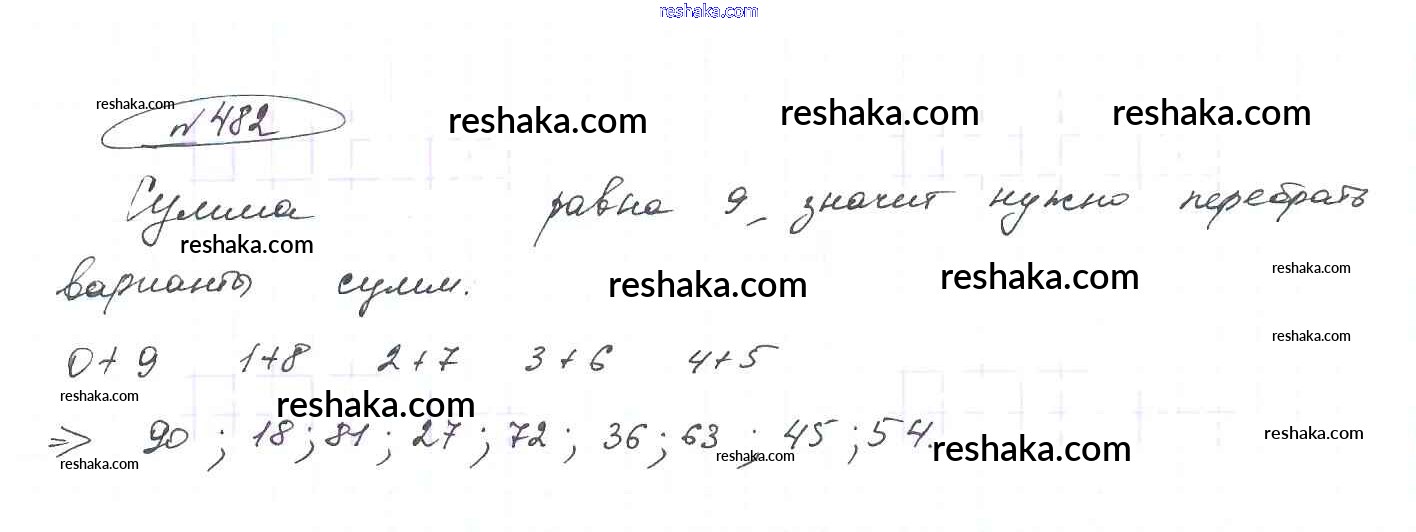 reshaka.com
reshaka.com
№ 482 reshaka.com reshaka.com reshaka.com
Сумма равна 9, значит нужно перебрать
reshaka.com
варианты сумм. reshaka.com reshaka.com reshaka.com
reshaka.com
0+9 1+8 2+7 3+6 4+5
reshaka.com reshaka.com
=> 90; 18; 81; 27; 72; 36; 63; 45; 54. reshaka.com reshaka.com
reshaka.com reshaka.com